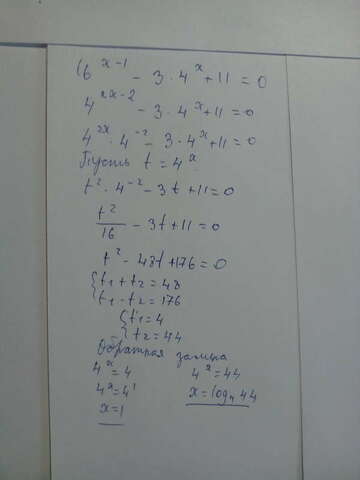 16^(x-1) - 3·4^x + 11 = 0
4^(2x-2) - 3·4^x + 11 = 0
4^(2x)·4^(-2) - 3·4^x + 11 = 0
Пусть t = 4^x
t²·4^(-2) - 3t + 11 = 0
t²/16 - 3t + 11 = 0
t² - 48t + 176 = 0
{t₁ + t₂ = 48
t₁·t₂ = 176
{t₁ = 4
t₂ = 44
Обратная замена
4^x = 4 4^x = 44
4^x = 4¹ x = log₄ 44
x = 1